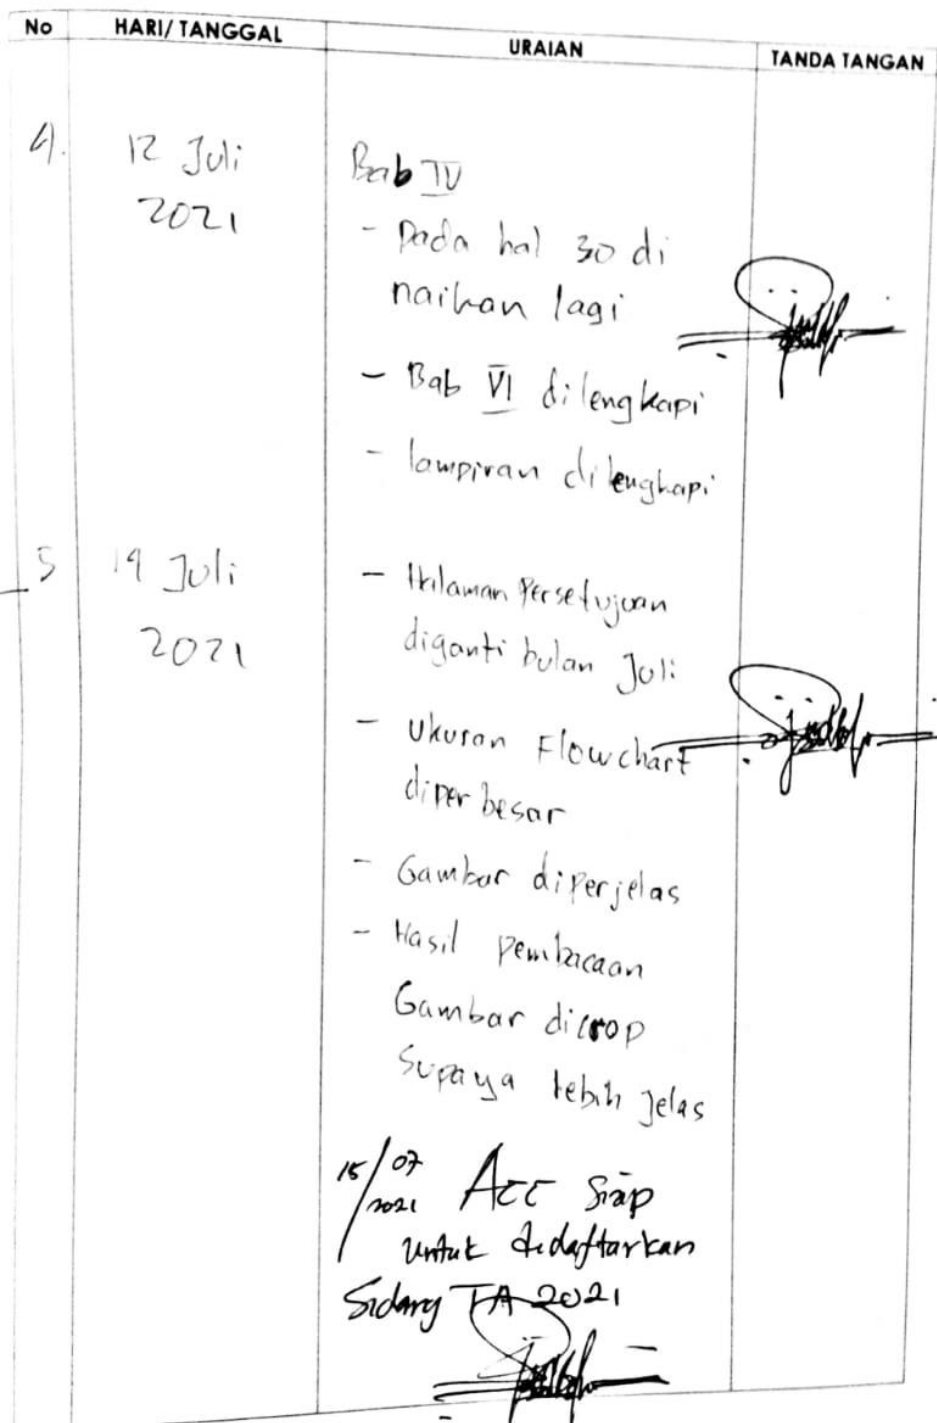 No HARI/ TANGGAL URAIAN TANDA TANGAN
4. 12 Juli Bab IV
2021 - Pada hal 30 di
naikan lagi
- Bab VI dilengkapi
- lampiran dilengkapi
5 14 Juli - Halaman Persetujuan
2021 diganti bulan Juli
- Ukuran Flowchart
diperbesar
- Gambar diperjelas
- Hasil pembacaan
Gambar dicrop
Supaya lebih jelas
15/07 2021 Acc Siap
untuk didaftarkan
Sidang TA 2021